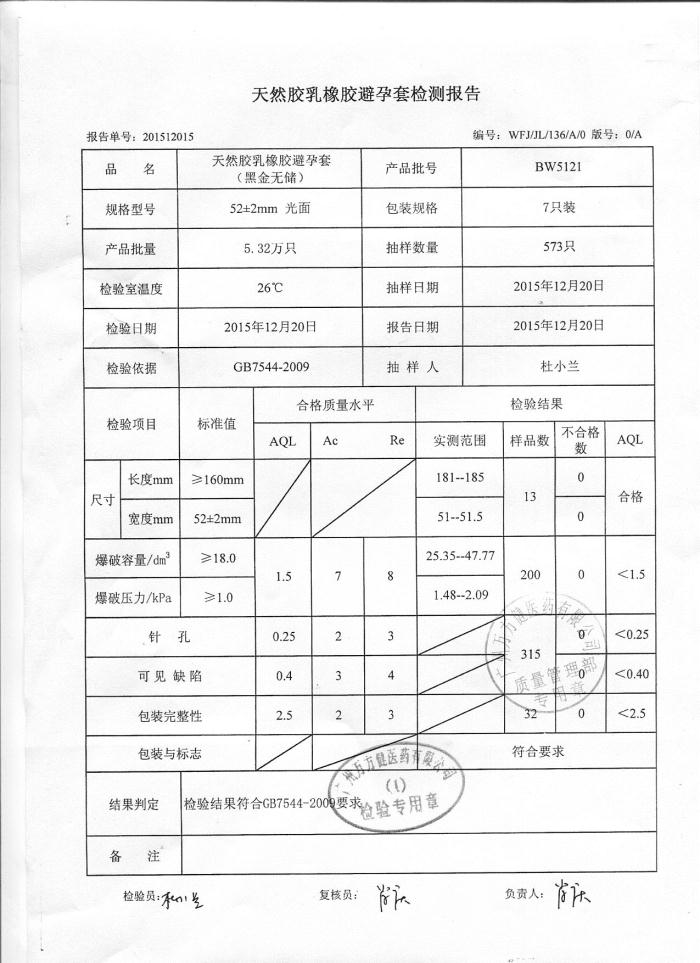 天然胶乳橡胶避孕套检测报告
报告单号：201512015 编号：WFJ/JL/136/A/0 版号：0/A
品 名 天然胶乳橡胶避孕套（黑金无储） 产品批号 BW5121
规格型号 52±2mm 光面 包装规格 7只装
产品批量 5.32万只 抽样数量 573只
检验室温度 26℃ 抽样日期 2015年12月20日
检验日期 2015年12月20日 报告日期 2015年12月20日
检验依据 GB7544-2009 抽 样 人 杜小兰
检验项目 标准值 合格质量水平 检验结果
AQL Ac Re 实测范围 样品数 不合格数 AQL
尺寸 长度mm ≥160mm 181--185 13 0 合格
宽度mm 52±2mm 51--51.5 0
爆破容量/dm³ ≥18.0 1.5 7 8 25.35--47.77 200 0 <1.5
爆破压力/kPa ≥1.0 1.48--2.09
针 孔 0.25 2 3 315 0 <0.25
可见缺陷 0.4 3 4 0 <0.40
包装完整性 2.5 2 3 32 0 <2.5
包装与标志 符合要求
结果判定 检验结果符合GB7544-2009要求
备 注
广州万方健医药有限公司
质量管理部
专用章
广州万方健医药有限公司
(1)
检验专用章
检验员: 复核员: 负责人: